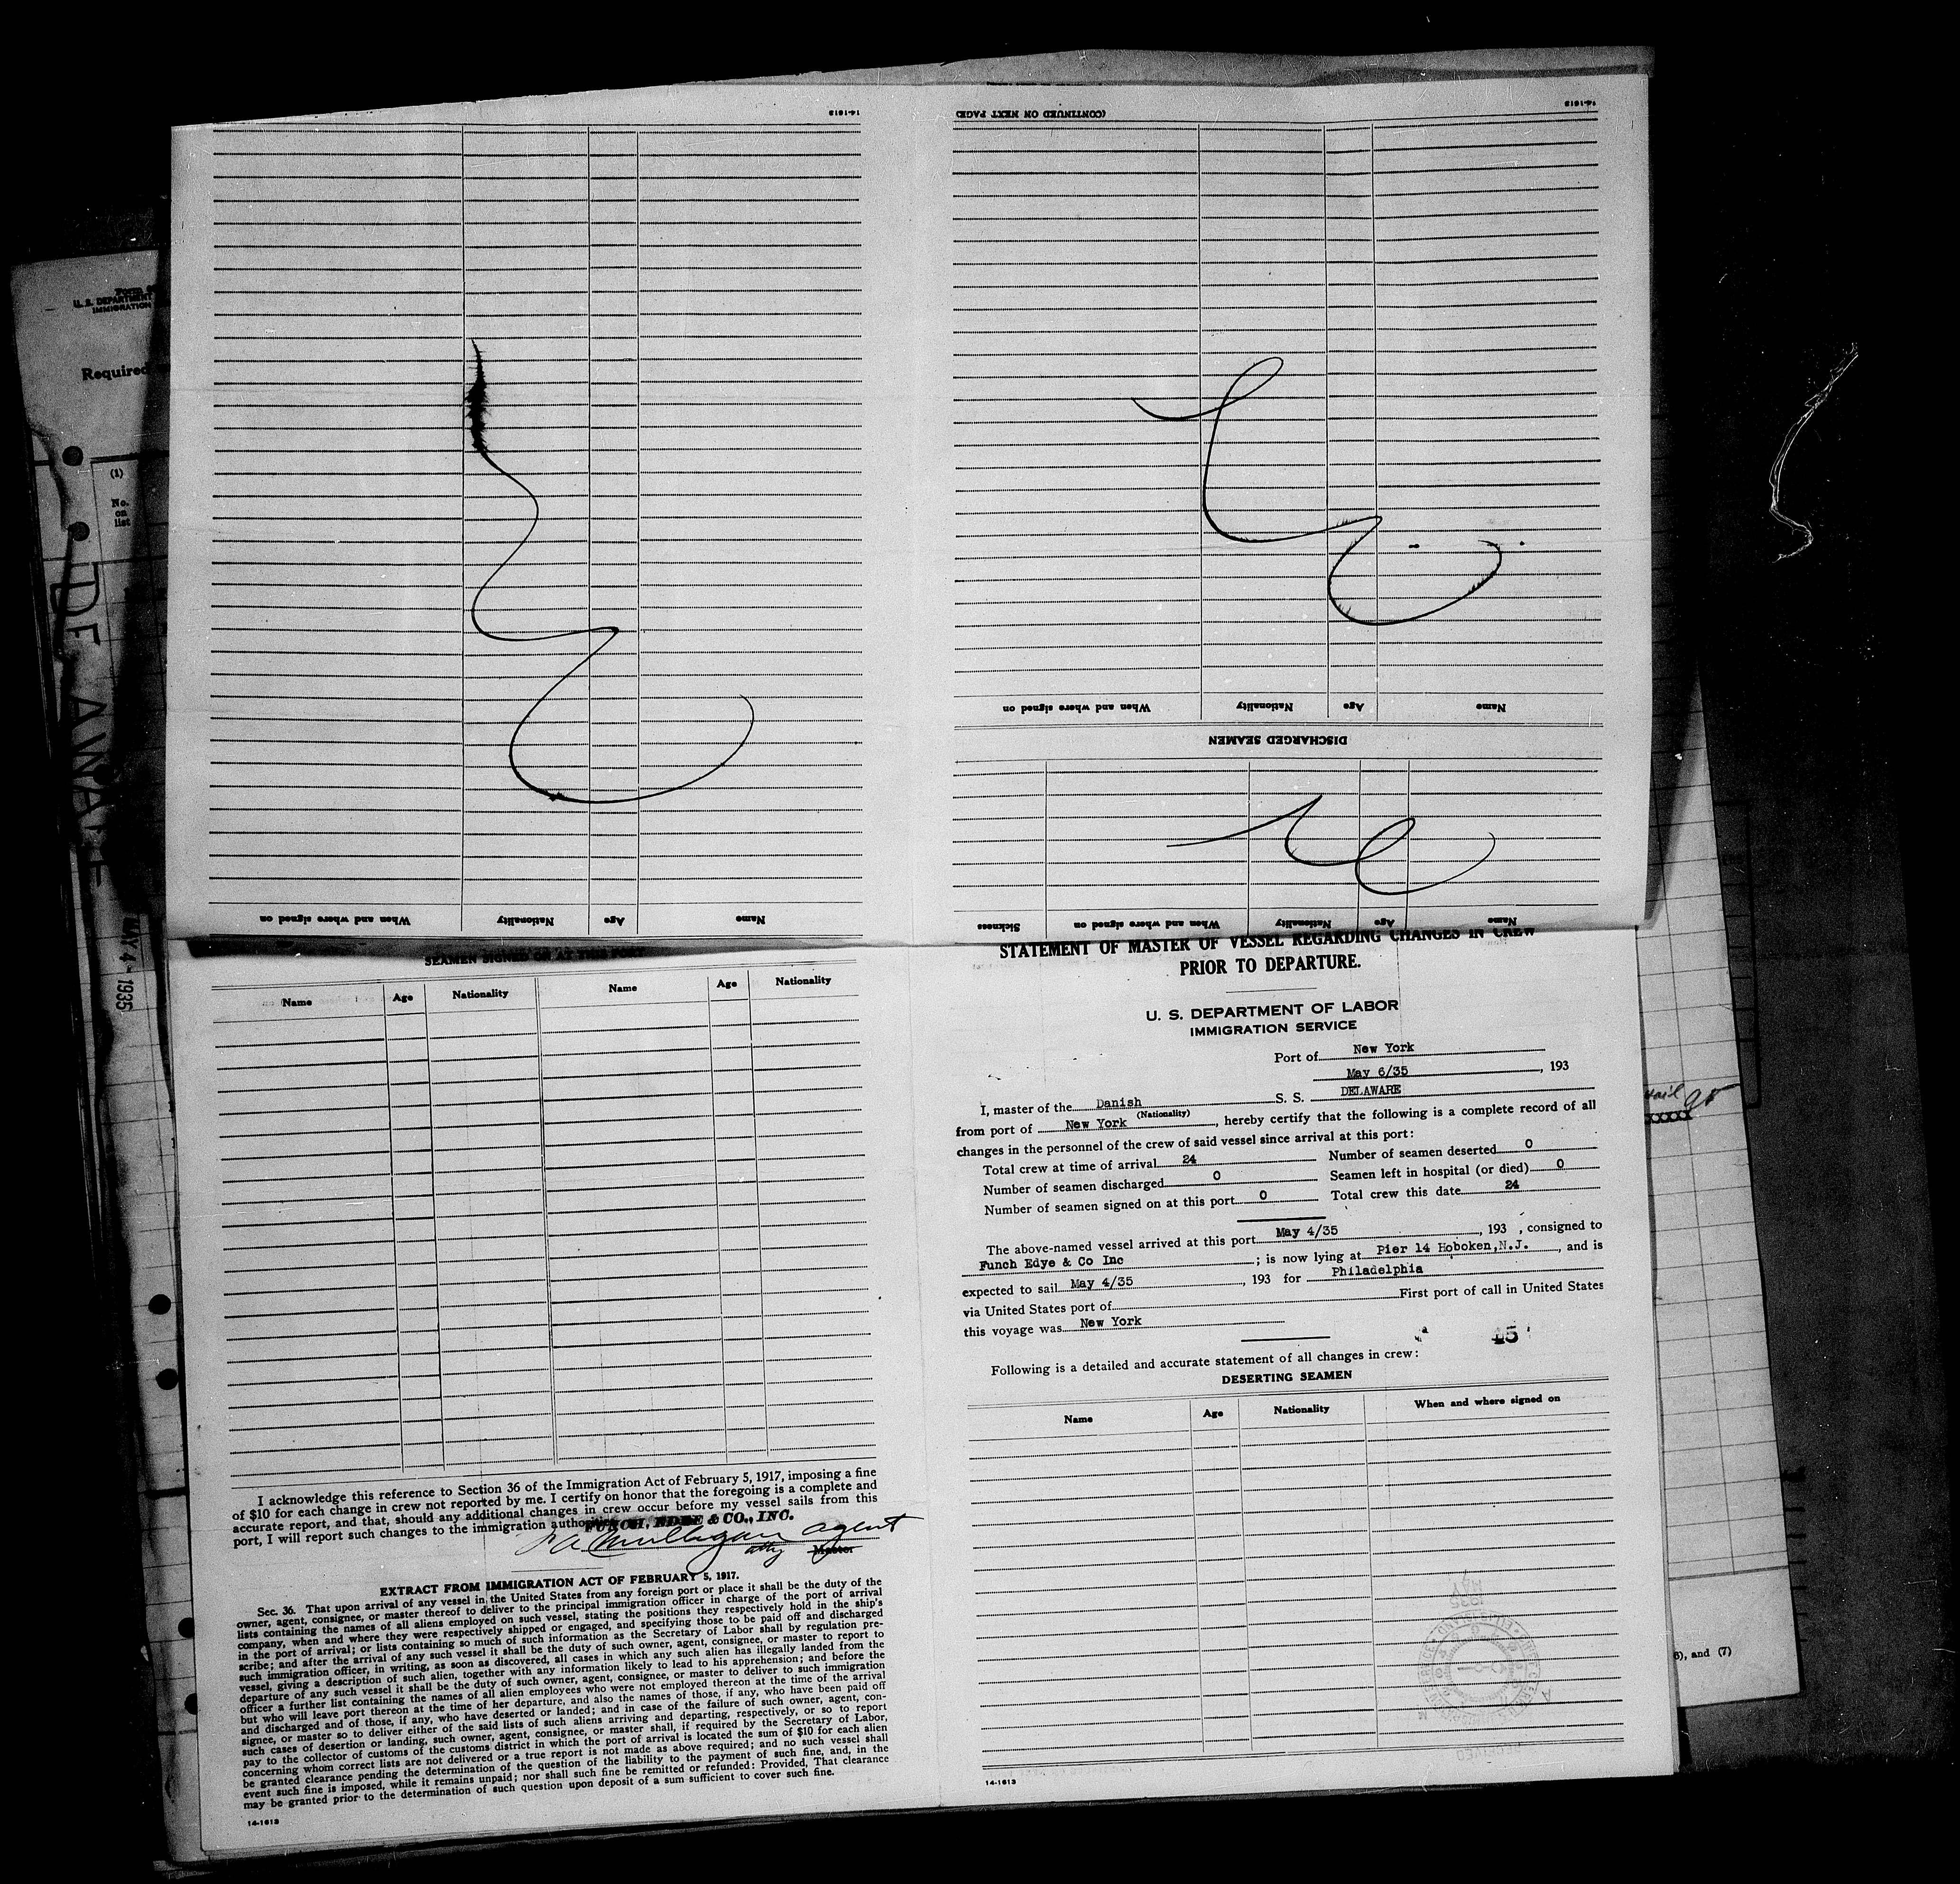 14-1613
When and where signed on Nationality Age Name
(CONTINUED ON NEXT PAGE)
14-1613
When and where signed on Nationality Age Name
DISCHARGED SEAMEN
Sickness When and where signed on Nationality Age Name
U. S. DEPARTMENT
IMMIGRATION
Required
(1)
No.
on
list
MAY 4 - 1935
SEAMEN SIGNED ON AT THIS PORT
Name Age Nationality Name Age Nationality
I acknowledge this reference to Section 36 of the Immigration Act of February 5, 1917, imposing a fine
of $10 for each change in crew not reported by me. I certify on honor that the foregoing is a complete and
accurate report, and that, should any additional changes in crew occur before my vessel sails from this
port, I will report such changes to the immigration
FUNCH, EDYE & CO., INC.
Mulligan agent
atty Master
EXTRACT FROM IMMIGRATION ACT OF FEBRUARY 5, 1917.
Sec. 36. That upon arrival of any vessel in the United States from any foreign port or place it shall be the duty of the
owner, agent, consignee, or master thereof to deliver to the principal immigration officer in charge of the port of arrival
lists containing the names of all aliens employed on such vessel, stating the positions they respectively hold in the ship's
company, when and where they were respectively shipped or engaged, and specifying those to be paid off and discharged
in the port of arrival; or lists containing so much of such information as the Secretary of Labor shall by regulation pre-
scribe; and after the arrival of any such vessel it shall be the duty of such owner, agent, consignee, or master to report to
such immigration officer, in writing, as soon as discovered, all cases in which any such alien has illegally landed from the
vessel, giving a description of such alien, together with any information likely to lead to his apprehension; and before the
departure of any such vessel it shall be the duty of such owner, agent, consignee, or master to deliver to such immigration
officer a further list containing the names of all alien employees who were not employed thereon at the time of the arrival
but who will leave port thereon at the time of her departure, and also the names of those, if any, who have been paid off
and discharged and of those, if any, who have deserted or landed; and in case of the failure of such owner, agent, con-
signee, or master so to deliver either of the said lists of such aliens arriving and departing, respectively, or so to report
such cases of desertion or landing, such owner, agent, consignee, or master shall, if required by the Secretary of Labor,
pay to the collector of customs of the customs district in which the port of arrival is located the sum of $10 for each alien
concerning whom correct lists are not delivered or a true report is not made as above required; and no such vessel shall
be granted clearance pending the determination of the question of the liability to the payment of such fine, and, in the
event such fine is imposed, while it remains unpaid; nor shall such fine be remitted or refunded: Provided, That clearance
may be granted prior to the determination of such question upon deposit of a sum sufficient to cover such fine.
14-1613
STATEMENT OF MASTER OF VESSEL REGARDING CHANGES IN CREW
PRIOR TO DEPARTURE.
U. S. DEPARTMENT OF LABOR
IMMIGRATION SERVICE
Port of New York
May 6/35, 193
I, master of the Danish S. S. DELAWARE
(Nationality)
from port of New York, hereby certify that the following is a complete record of all
changes in the personnel of the crew of said vessel since arrival at this port:
Total crew at time of arrival 24 Number of seamen deserted 0
Number of seamen discharged 0 Seamen left in hospital (or died) 0
Number of seamen signed on at this port 0 Total crew this date 24
The above-named vessel arrived at this port May 4/35, 193 , consigned to
Funch Edye & Co Inc ; is now lying at Pier 14 Hoboken,N.J., and is
expected to sail May 4/35, 193 for Philadelphia
via United States port of First port of call in United States
this voyage was New York
45
Following is a detailed and accurate statement of all changes in crew:
DESERTING SEAMEN
Name Age Nationality When and where signed on
14-1613
and (7)